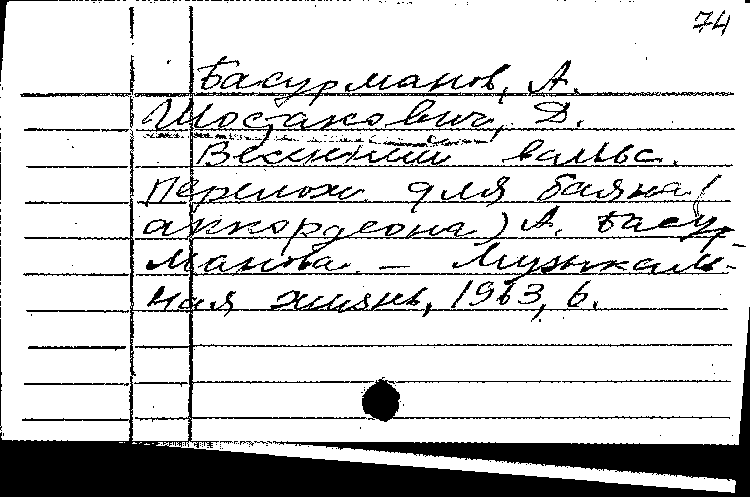 74
Басурманов, А.
Шостакович, Д.
Весенний вальс.
Перелож. для баяна (
аккордеона) А. Басур-
манова. — Музыкаль-
ная жизнь, 1963, 6.